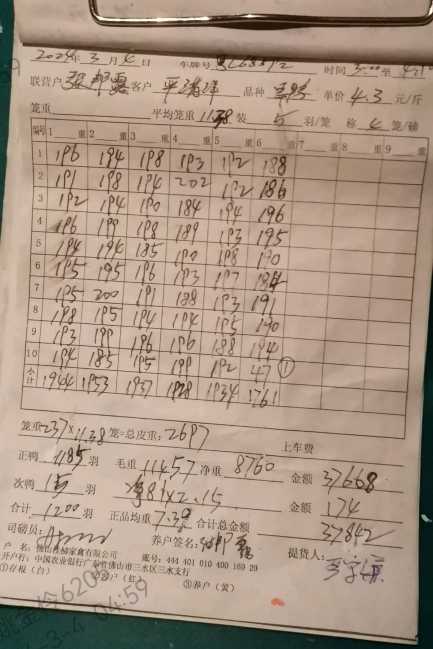 2024年3月4日 车牌号 时间 3:00 至
联营户 客户 品种 单价 4.3 元/斤
笼重 平均笼重 11.38 装 5 羽/笼 称 4 笼/磅
编号 1 重 2 重 3 重 4 重 5 重 6 重 7 重 8 重 9 重
1 196 194 198 193 192 188
2 191 198 194 202 192 186
3 192 194 190 184 194 196
4 196 199 198 189 193 195
5 194 194 185 190 198 190
6 195 195 196 193 197 184
7 195 200 191 188 193 191
8 198 195 194 194 195 190
9 193 199 196 196 188 194
10 194 185 195 199 192 47 ①
合计 1944 1953 1937 1928 1934 1761
笼重 237×11.38 笼=总皮重: 2697 上车费
正鸭 1185 羽 毛重 11457 净重 8760 金额 37668
次鸭 15 羽 净81×2.15 金额 174
合计 1200 羽 正品均重 7.39 合计总金额 37842
司磅员: 养户签名: 提货人:
户 名: 佛山 家禽有限公司
开户行: 中国农业银行 佛山市三水区三水支行 账号: 444 401 010 400 169 29
①存根(白) ②客户(红) ③养户(黄)
04:59